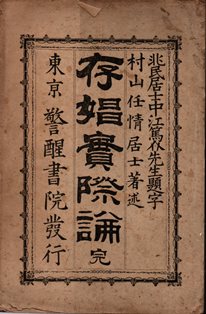 兆民居士中江篤介先生顯字
村山任情居士著述
存娼實際論 完
東京 警醒書院發行